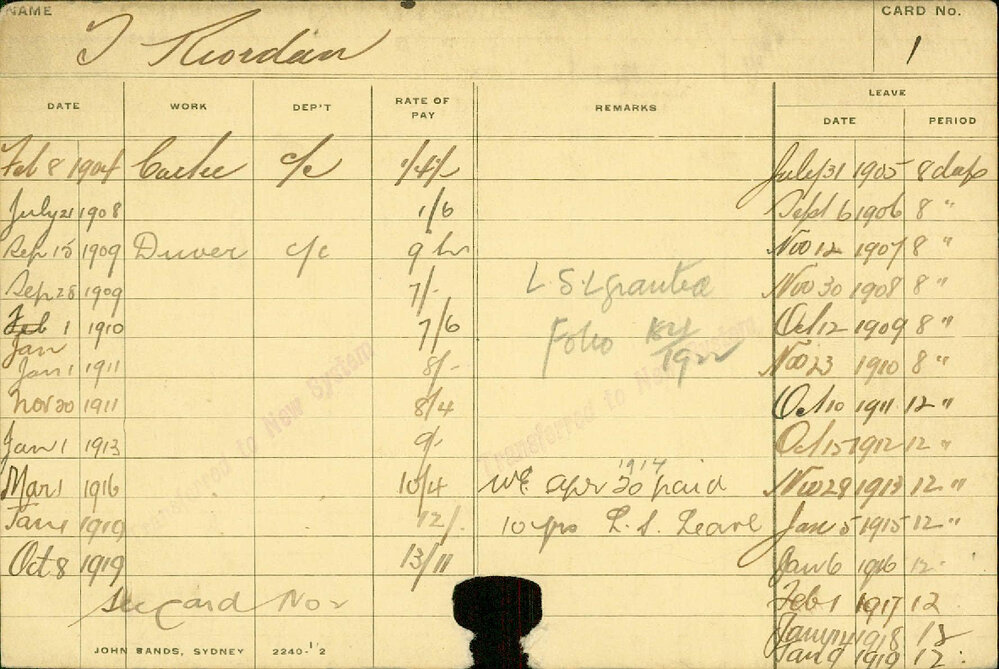 NAME
CARD No.
T Riordan
1
DATE WORK DEP'T RATE OF PAY REMARKS LEAVE
DATE PERIOD
Feb 8 1904 c/c July 31 1905 8 days
July 21 1908 1/6 Sept 6 1906 8 "
Sep 15 1909 Driver c/c 9 hrs Nov 12 1907 8 "
Sep 28 1909 7/- L.S.L granted Nov 30 1908 8 "
Feb 1 1910 7/6 Folio Oct 12 1909 8 "
Jan
Jan 1 1911 8/- 1922 Nov 23 1910 8 "
Nov 30 1911 8/4 Oct 10 1911 12 "
Jan 1 1913 9/- Oct 15 1912 12 "
1914
Mar 1 1916 10/4 W.E. Apr 30 paid Nov 28 1913 12 "
Jan 1 1919 12/- 10 yrs L. S. Leave Jan 5 1915 12 "
Oct 8 1919 13/11 Jan 6 1916 12
See Card No 2 Feb 1 1917 12
1918 12
Jan 9 1919 12
Transferred to New System
Transferred to New System
JOHN SANDS, SYDNEY 2240-12